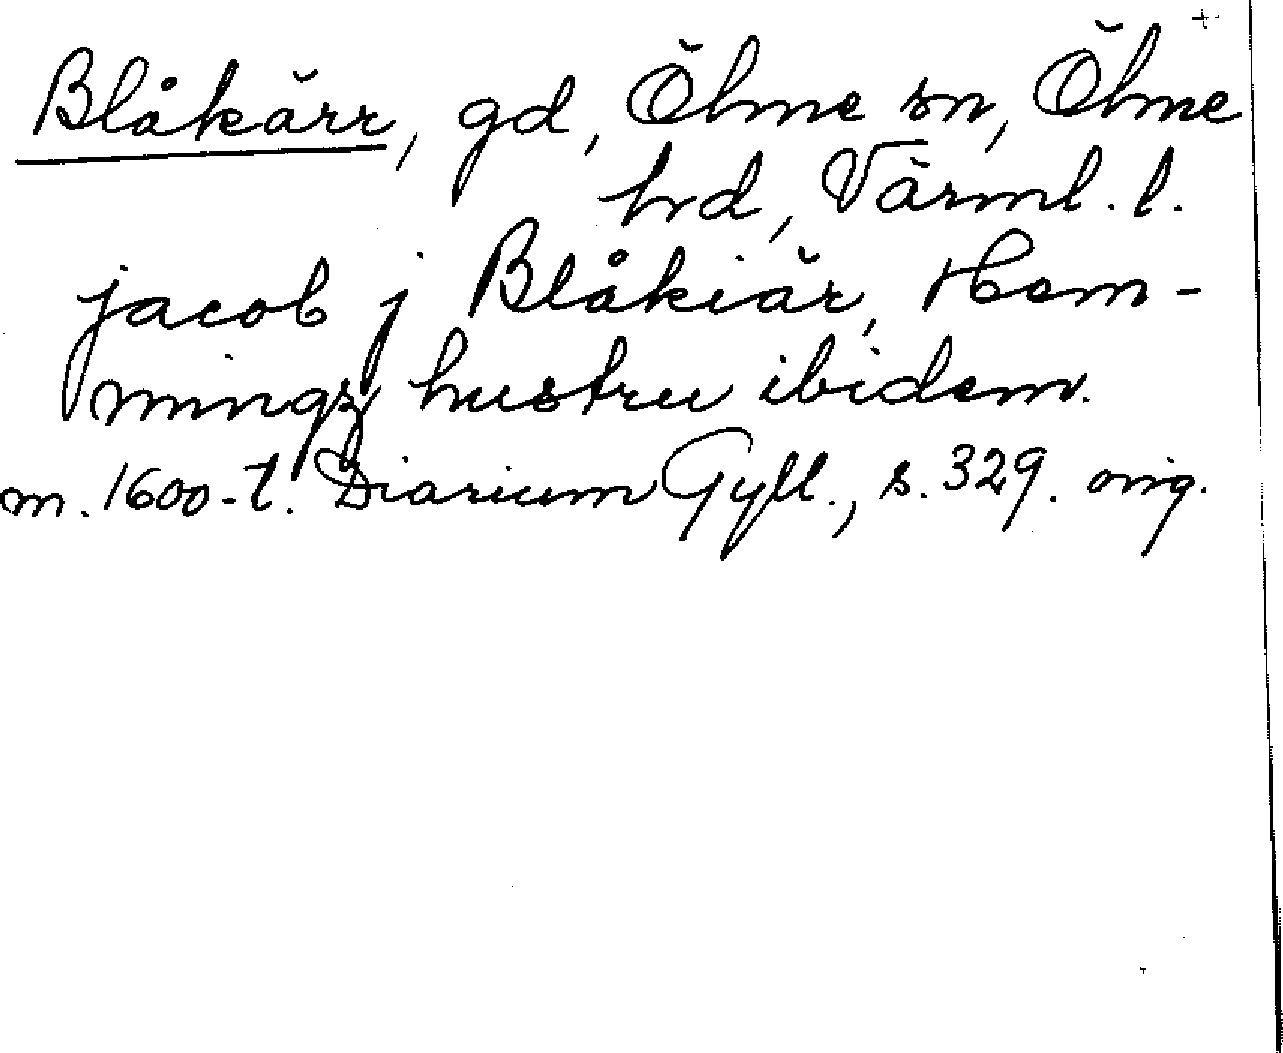 Blåkärr, gd, Ölme sn, Ölme
hrd, Värml. l.
jacob j Blåkiär, Hem-
mingz hustru ibidem.
m. 1600-t. Diarium Gyll., s. 329. orig.